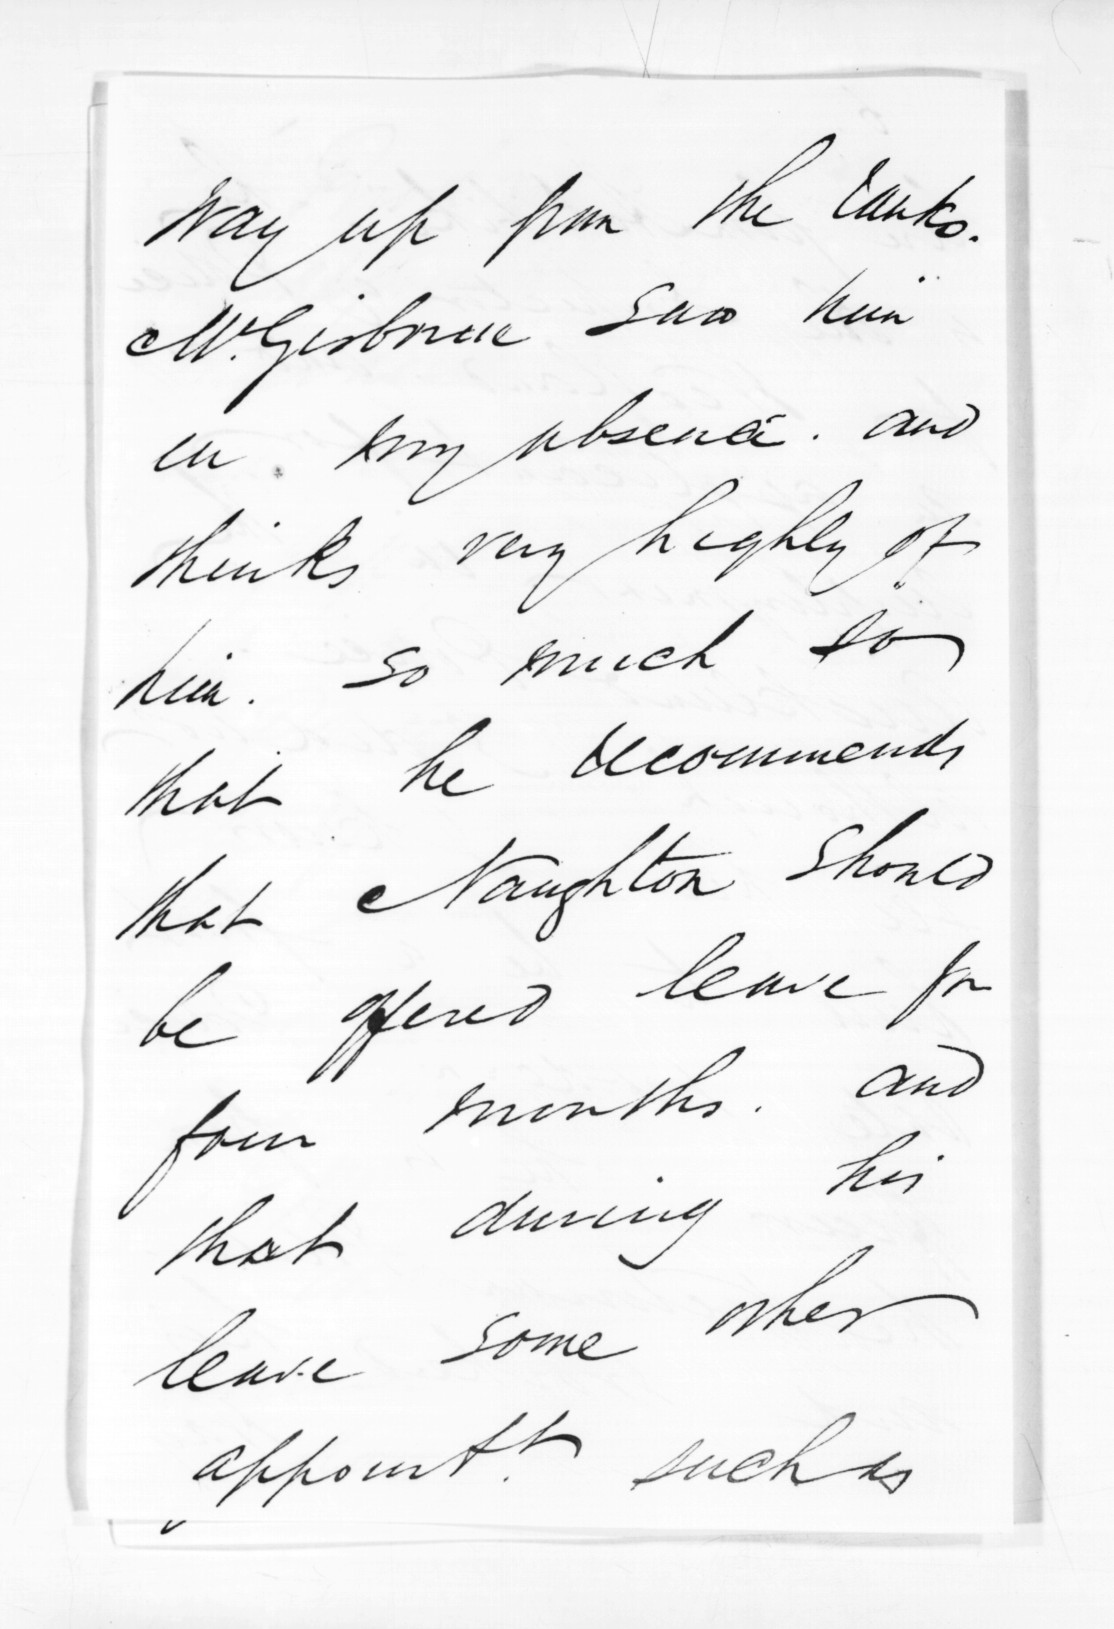 way up from the ranks.
Mr. Gisborne saw him
in my absence. and
thinks very highly of
him. so much so
that he recommends
that Naughton should
be offered leave for
four months. and
that during his
leave some other
appointt. such as